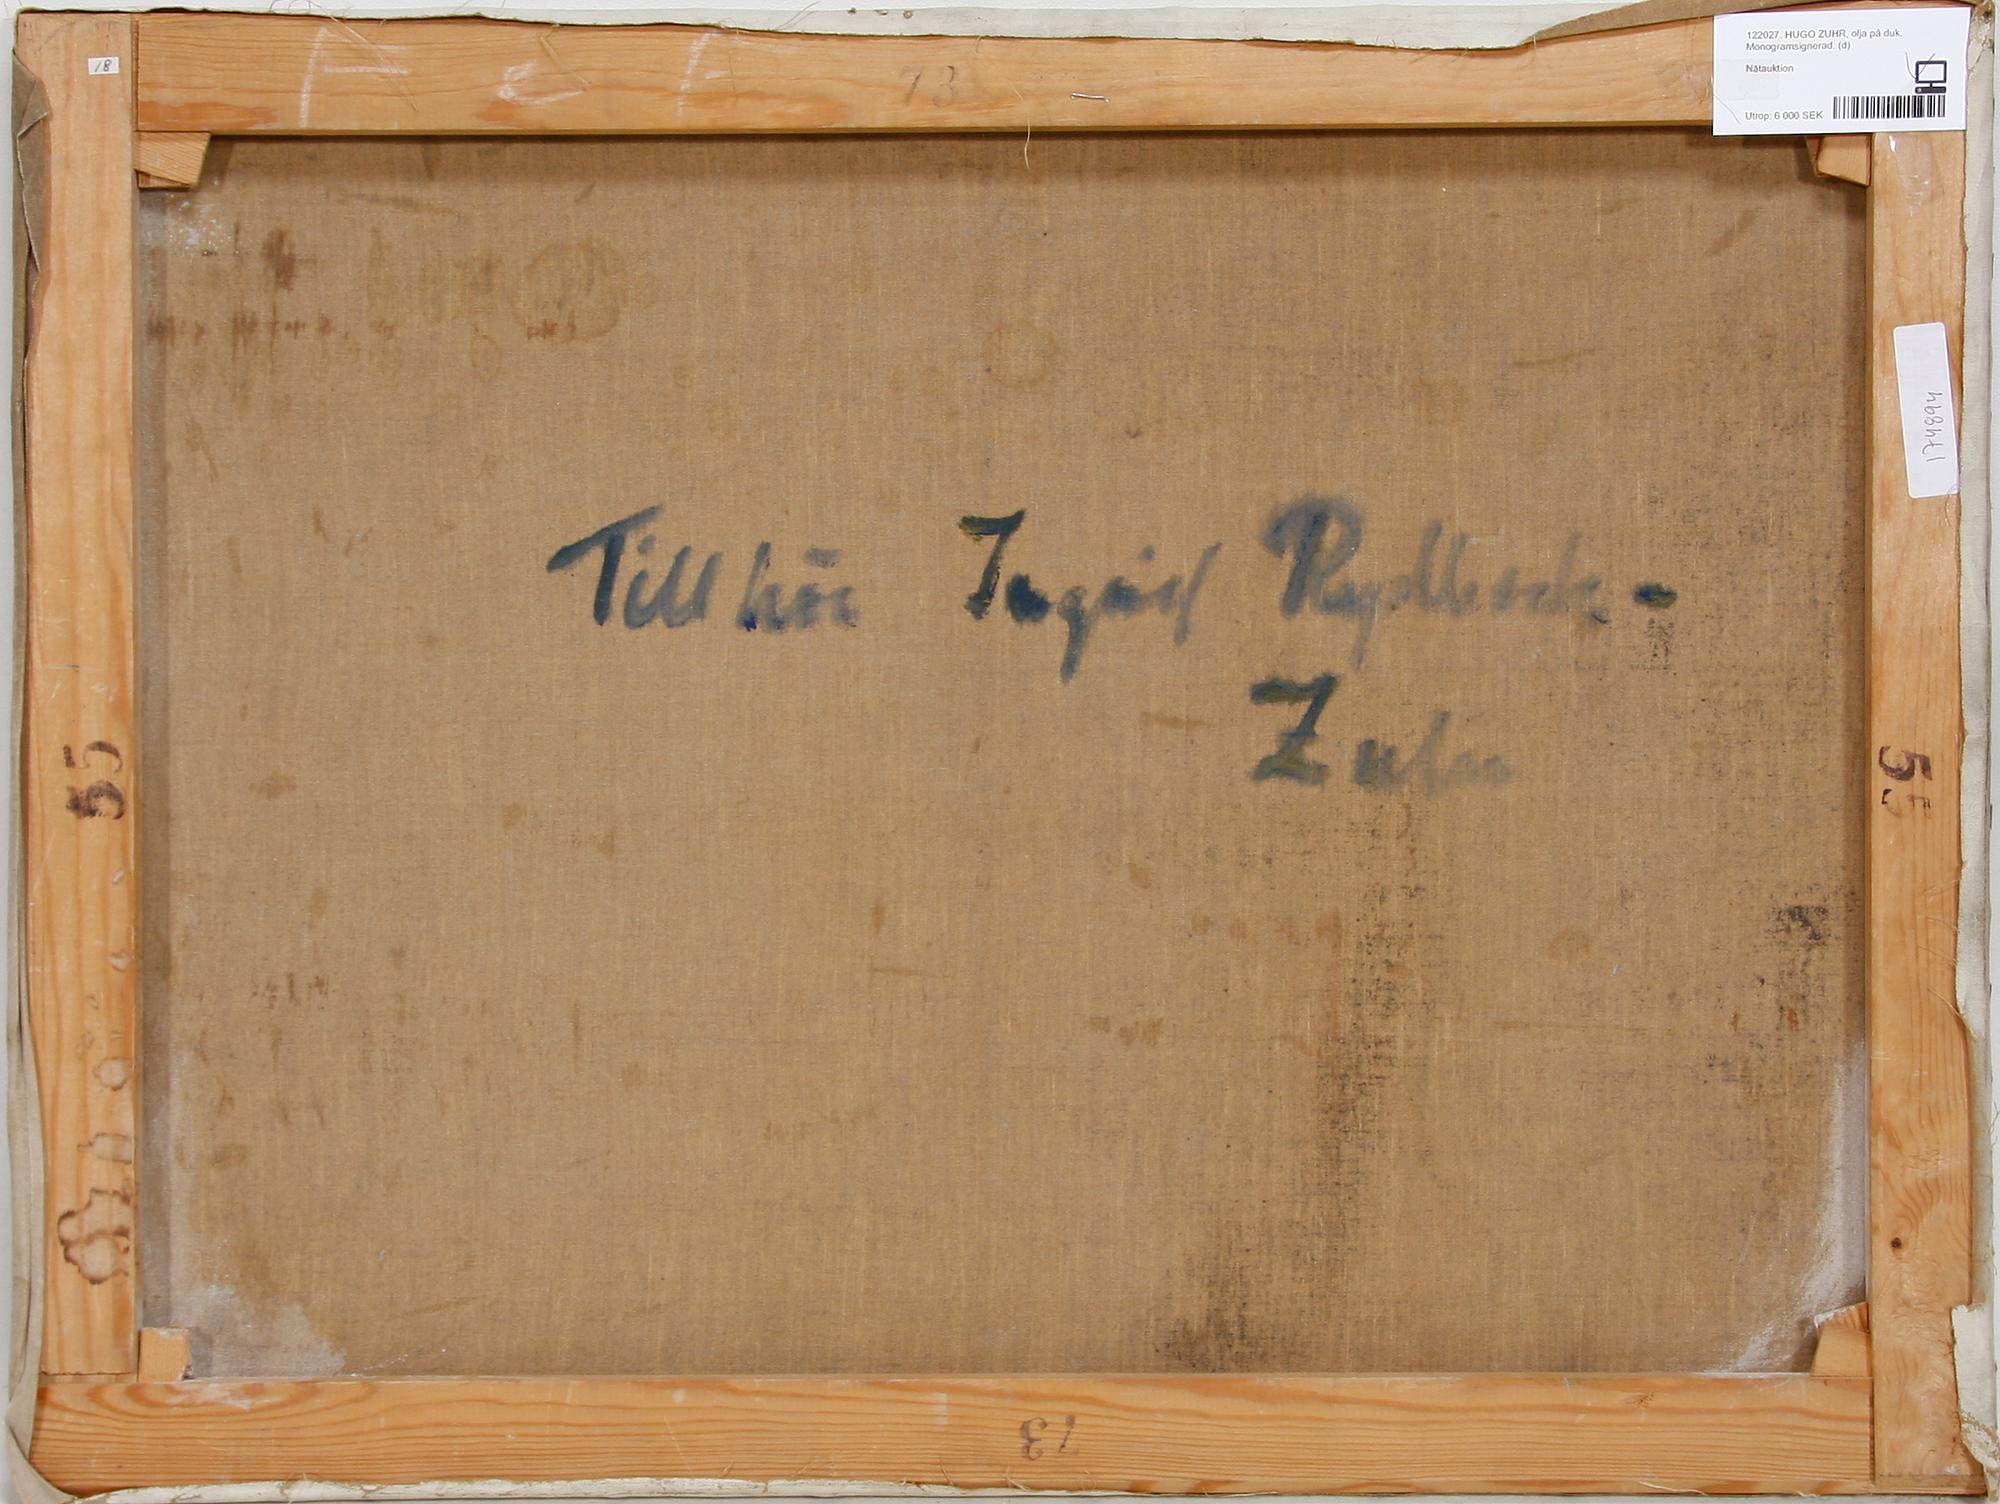 122027. HUGO ZUHR, olja på duk.
Monogramsignerad. (d)
Nätauktion
Utrop: 6 000 SEK
18
73
174894
Tillhör Ingrid Rydbeck-
Zuhr
55
55
73